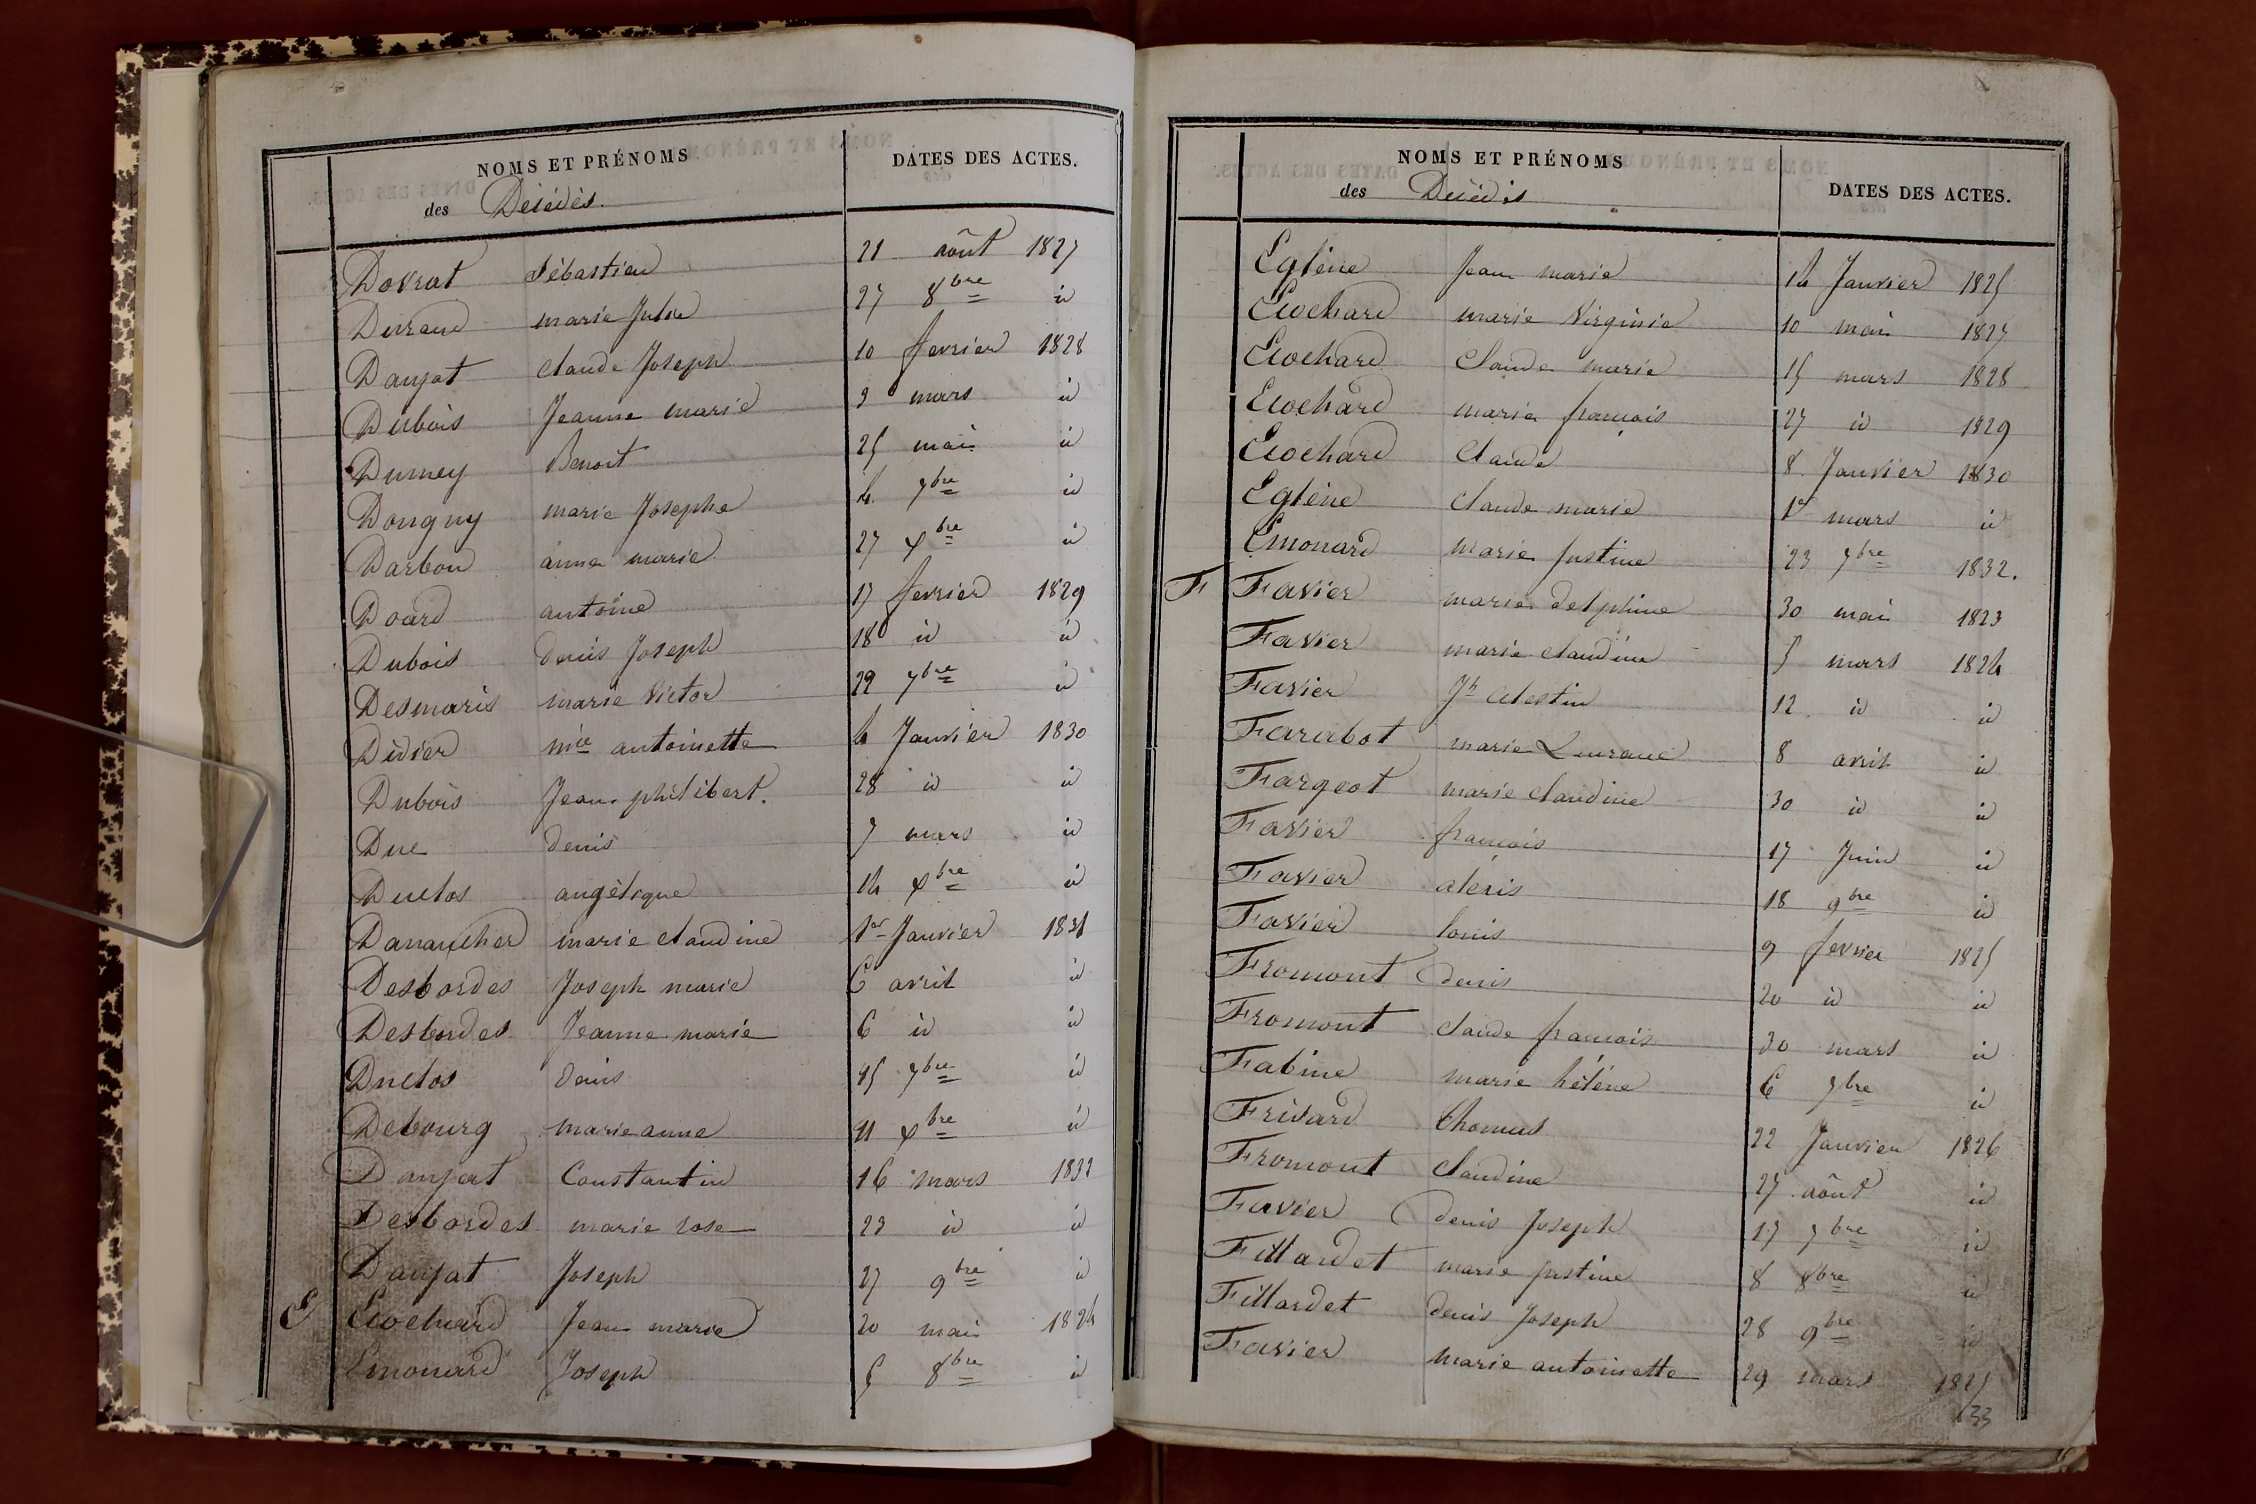 NOMS ET PRÉNOMS DATES DES ACTES.
des Décédés.
Dovrat Sébastien 21 août 1827
Durand marie Julie 27 8bre id
Danjat claude Joseph 10 fevrier 1828
Dubois Jeanne marie 3 mars id
Dumey Benoit 25 mai id
Dougny marie Josephe 4 7bre id
Darbon anne marie 27 xbre id
Doard antoine 17 fevrier 1829
Dubois denis Joseph 18 id id
Desmaris marie Victor 22 7bre id
Didier mie antoinette 4 Janvier 1830
Dubois Jean philibert. 28 id id
Duc denis 7 mars id
Duclos angèlique 14 xbre id
Danancher marie claudine 1er Janvier 1831
Desbordes Joseph marie 6 avril id
Desbordes Jeanne marie 6 id id
Duclos denis 15 7bre id
Debourg marie anne 11 xbre id
Danjat Constantin 16 mars 1832
Desbordes marie rose 23 id id
Danjat Joseph 27 9bre id
E Ecochard Jean marie 20 mai 1824
Emonard Joseph 5 8bre id
NOMS ET PRÉNOMS DATES DES ACTES.
des Décédés
Egléne Jean marie 14 Janvier 1825
Ecochard marie Virginie 10 mai 1827
Ecochard Claude marie 15 mars 1828
Ecochard marie francois 27 id 1829
Ecochard Claude 8 Janvier 1830
Egléne claude marie 1er mars id
Emonard marie Justine 23 7bre 1832.
F Favier marie delphine 30 mai 1823
Favier marie claudine 5 mars 1824
Favier Jh celestin 12 id id
Farabot marie 8 avril id
Fargeot marie claudine 30 id id
Favier francois 17 Juin id
Favier alexis 18 9bre id
Favier louis 9 fevrier 1825
Fromont denis 20 id id
Fromont claude francois 30 mars id
Fabine marie hélène 6 7bre id
Thomas 22 Janvier 1826
Fromont Claudine 27 août id
Favier denis Joseph 17 7bre id
Fillardet marie Justine 8 8bre id
Fillardet denis Joseph 28 9bre id
Favier marie antoinette 29 mars 1827
33